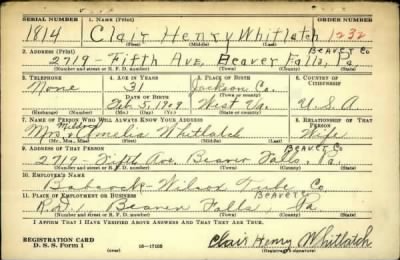 SERIAL NUMBER 1. NAME (Print) ORDER NUMBER
1814 Clair Henry Whitlatch 1232
(First) (Middle) (Last)
2. ADDRESS (Print) BEAVER CO
2719 - Fifth Ave, Beaver Falls, Pa.
(Number and street or R. F. D. number) (Town) (County) (State)
3. TELEPHONE 4. AGE IN YEARS 5. PLACE OF BIRTH 6. COUNTRY OF CITIZENSHIP
None 31 Jackson Co.
DATE OF BIRTH (Town or county)
5, 1909 West Va. U.S.A
(Exchange) (Number) (Mo.) (Day) (Yr.) (State or country)
7. NAME OF PERSON WHO WILL ALWAYS KNOW YOUR ADDRESS 8. RELATIONSHIP OF THAT PERSON
Mildred
Mrs. Amelia Whitlatch Wife
(Mr., Mrs., Miss) (First) (Middle) (Last)
9. ADDRESS OF THAT PERSON BEAVER CO
2719 - Fifth Ave. Beaver Falls, Pa.
(Number and street or R. F. D. number) (Town) (County) (State)
10. EMPLOYER'S NAME
Babcock - Wilcox Tube Co
11. PLACE OF EMPLOYMENT OR BUSINESS BEAVER Co
Beaver Falls, Pa
(Number and street or R. F. D. number) (Town) (County) (State)
I AFFIRM THAT I HAVE VERIFIED ABOVE ANSWERS AND THAT THEY ARE TRUE.
REGISTRATION CARD
D. S. S. Form 1 16-17105 Clair Henry Whitlatch
(Registrant's signature)